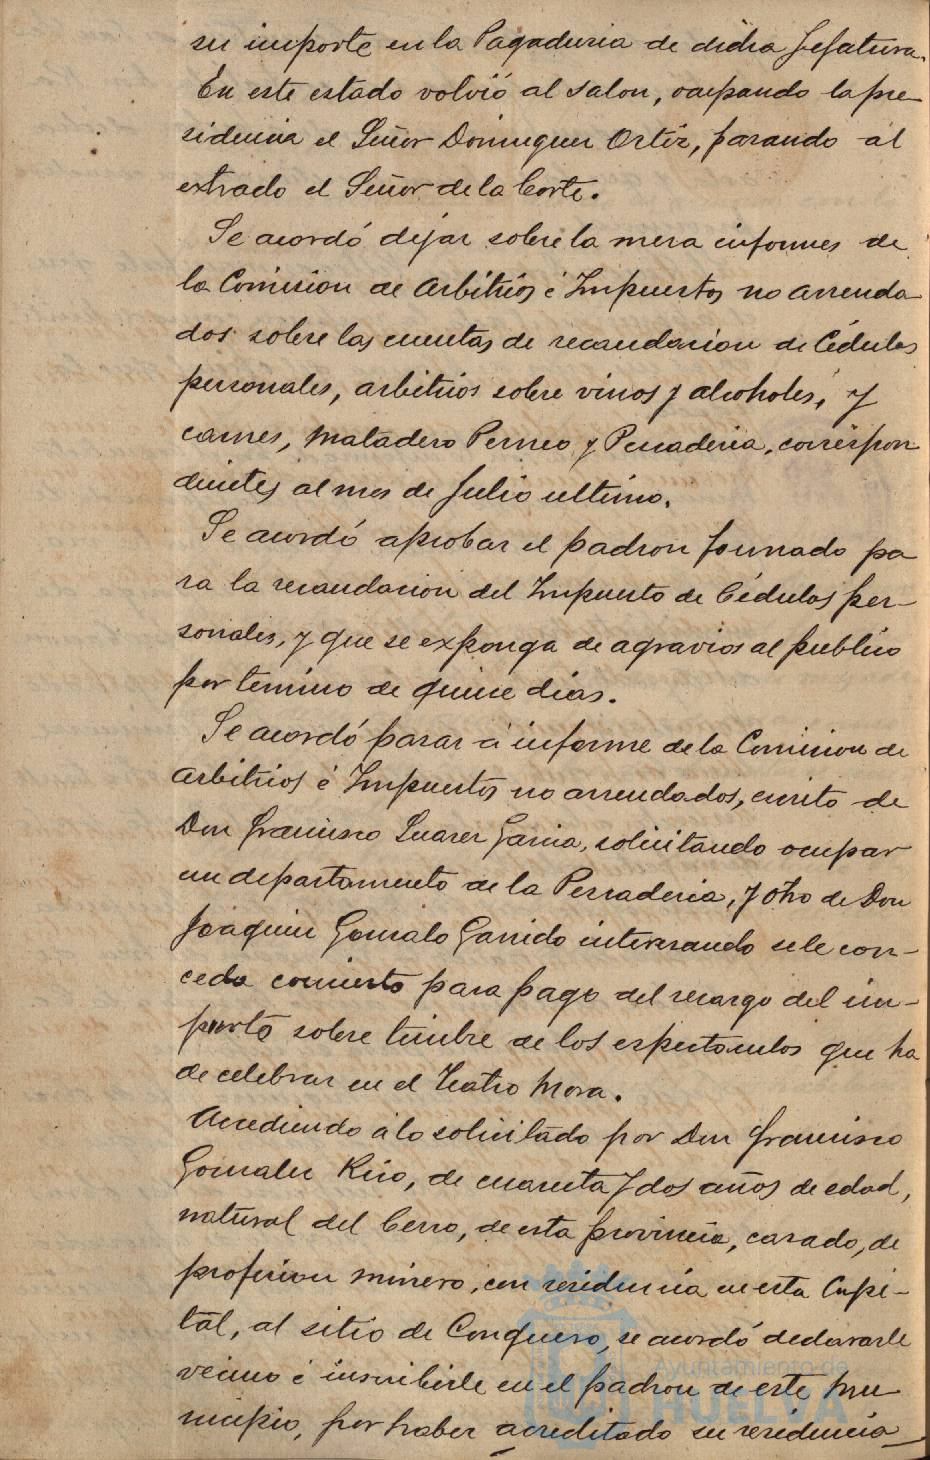 su importe en la Pagaduria de dicha Jefatura.
En este estado volvió al salon, ocupando la pre-
sidencia el Señor Dominguez Ortiz, pasando al
estrado el Señor de la Corte.
Se acordó dejar sobre la mesa informes de
la Comision de Arbitrios é Impuestos no arrenda
dos sobre las cuentas de recaudacion de Cédulas
personales, arbitrios sobre vinos y alcoholes, y
carnes, matadero Perneo y Pescaderia, correspon
dientes al mes de Julio ultimo.
Se acordó aprobar el padron formado pa
ra la recaudacion del Impuesto de Cédulas per-
sonales, y que se exponga de agravios al publico
por termino de quince dias.
Se acordó pasar á informe de la Comision de
Arbitrios é Impuestos no arrendados, escrito de
Don Francisco Suarez Garcia, solicitando ocupar
un departamento de la Pescaderia, y otro de Don
Joaquin Gonzalo Garrido interesando se le con-
ceda concierto para pago del recargo del im-
puesto sobre timbre de los espectaculos que ha
de celebrar en el Teatro Mora.
Accediendo á lo solicitado por Don Francisco
Gonzalez Rico, de cuarenta y dos años de edad,
natural del Cerro, de esta provincia, casado, de
profesion minero, con residencia en esta Capi-
tal, al sitio de Conquero, se acordó declararle
vecino é inscribirle en el padron de este Mu-
nicipio, por haber acreditado su residencia
Ayuntamiento de
HUELVA